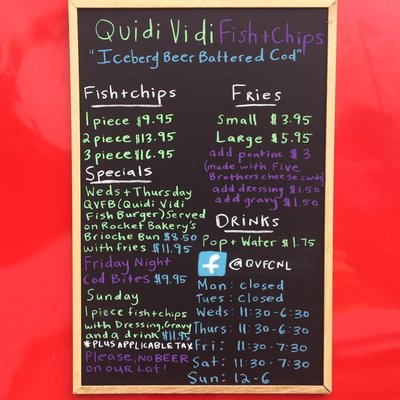 Quidi Vidi Fish+Chips
"Iceberg Beer Battered Cod"
Fish+chips
1 piece $9.95
2 piece $13.95
3 piece $16.95
Specials
Weds + Thursday
QVFB (Quidi Vidi
Fish Burger) Served
on Rocket Bakery's
Brioche Bun $8.50
with fries $11.95
Friday Night
Cod Bites $9.95
Sunday
1 piece fish+chips
with Dressing, Gravy
and a drink $11.95
*PLUS APPLICABLE TAX
Please, NO BEER
on our Lot!
Fries
Small $3.95
Large $5.95
add poutine $3
(made with Five
Brothers cheese curds)
add dressing $1.50
add gravy $1.50
Drinks
Pop + Water $1.75
f @QVFCNL
Mon: closed
Tues: closed
Weds: 11:30-6:30
Thurs: 11:30-6:30
Fri: 11:30-7:30
Sat: 11:30-7:30
Sun: 12-6